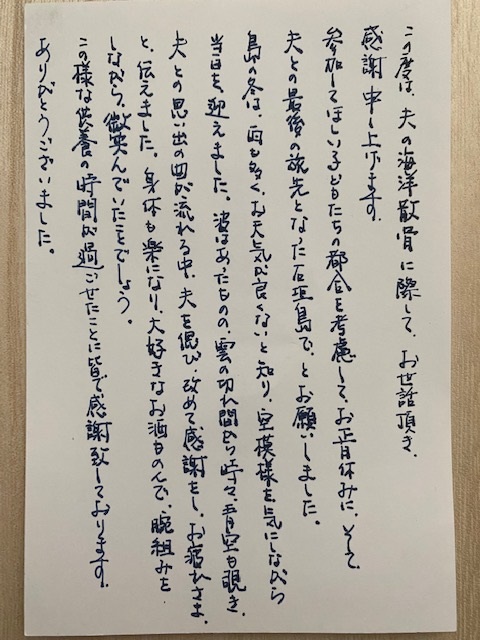 この度は、夫の海洋散骨に際して、お世話頂き、
感謝申し上げます。
参加してほしい子どもたちの都合を考慮して、お正月休みに、そして、
夫との最後の旅先となった石垣島で、とお願いしました。
島の冬は、雨も多く、お天気が良くないと知り、空模様を気にしながら
当日を迎えました。波はあったものの、雲の切れ間から時々、青空も覗き、
夫との思い出の曲が流れる中、夫を偲び、改めて感謝をし、お疲れさま、
と、伝えました。身体も楽になり、大好きなお酒ものんで、腕組みを
しながら、微笑んでいたことでしょう。
この様な供養の時間が過ごせたことに皆で感謝致しております。
ありがとうございました。